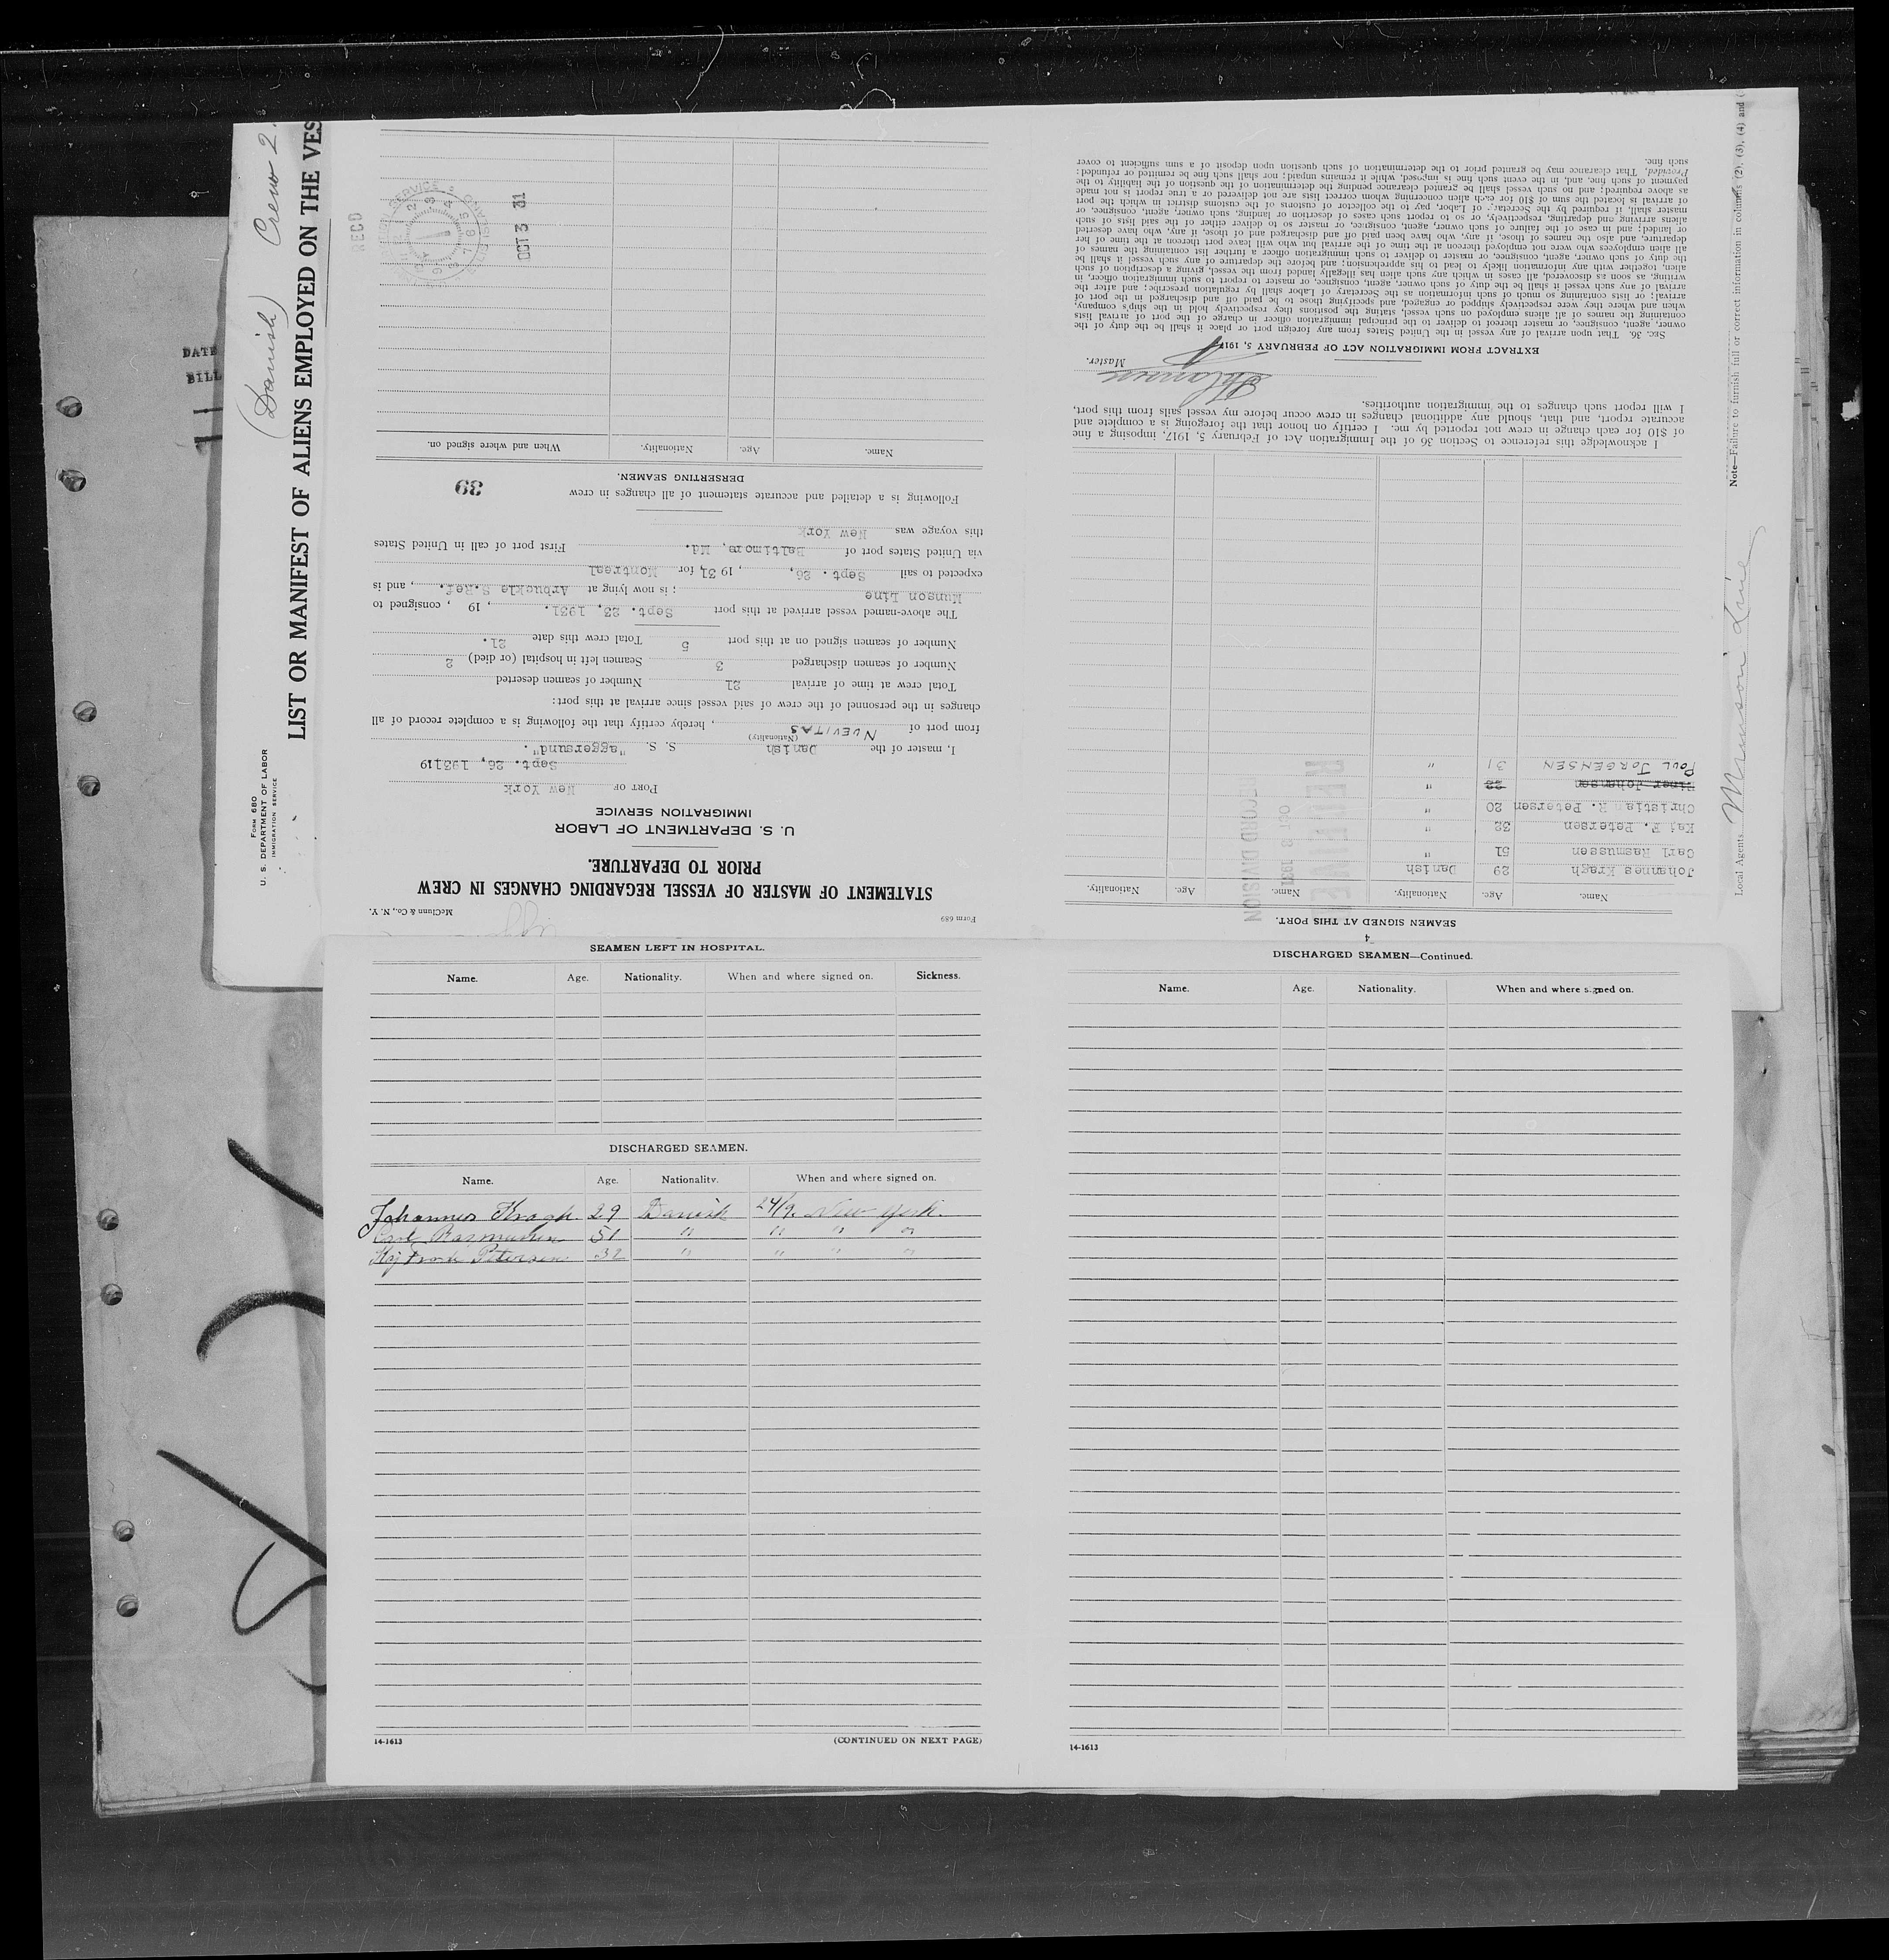 Form 689
McClunn & Co., N. Y.
STATEMENT OF MASTER OF VESSEL REGARDING CHANGES IN CREW
PRIOR TO DEPARTURE.
U. S. DEPARTMENT OF LABOR
IMMIGRATION SERVICE
PORT OF New York
Sept. 26, 193119
I, master of the Danish S. S. "aggersund".
(Nationality)
from port of NUEVITAS, hereby certify that the following is a complete record of all
changes in the personnel of the crew of said vessel since arrival at this port:
Total crew at time of arrival 21 Number of seamen deserted
Number of seamen discharged 3 Seamen left in hospital (or died) 2
Number of seamen signed on at this port 5 Total crew this date 21.
The above-named vessel arrived at this port Sept. 23, 1931., 19 , consigned to
Munson Line ; is now lying at Arbuckle S.Ref., and is
expected to sail Sept. 26, , 1931 for Montreal
via United States port of Baltimore, Md. First port of call in United States
this voyage was New York
Following is a detailed and accurate statement of all changes in crew
39
DERSERTING SEAMEN.
Name. Age. Nationality. When and where signed on.
OCT 3 31
RECD
SEAMEN SIGNED AT THIS PORT.
4
Name. Age. Nationality. Name. Age. Nationality.
Johannes Kragh 29 Danish
Carl Rasmussen 51 "
Kai F. Petersen 32 "
Christian R. Petersen 20 "
Einer Johansen 22 "
POUL JORGENSEN 31 "
RECEIVED
OCT 3 1931
RECORD DIVISION
I acknowledge this reference to Section 36 of the Immigration Act of February 5, 1917, imposing a fine
of $10 for each change in crew not reported by me. I certify on honor that the foregoing is a complete and
accurate report, and that, should any additional changes in crew occur before my vessel sails from this port,
I will report such changes to the immigration authorities.
Master.
EXTRACT FROM IMMIGRATION ACT OF FEBRUARY 5, 1917
Sec. 36. That upon arrival of any vessel in the United States from any foreign port or place it shall be the duty of the
owner, agent, consignee, or master thereof to deliver to the principal immigration officer in charge of the port of arrival lists
containing the names of all aliens employed on such vessel, stating the positions they respectively hold in the ship's company,
when and where they were respectively shipped or engaged, and specifying those to be paid off and discharged in the port of
arrival; or lists containing so much of such information as the Secretary of Labor shall by regulation prescribe; and after the
arrival of any such vessel it shall be the duty of such owner, agent, consignee, or master to report to such immigration officer, in
writing, as soon as discovered, all cases in which any such alien has illegally landed from the vessel, giving a description of such
alien, together with any information likely to lead to his apprehension; and before the departure of any such vessel it shall be
the duty of such owner, agent, consignee, or master to deliver to such immigration officer a further list containing the names of
all alien employees who were not employed thereon at the time of the arrival but who will leave port thereon at the time of her
departure, and also the names of those, if any, who have been paid off and discharged and of those, if any, who have deserted
or landed; and in case of the failure of such owner, agent, consignee, or master so to deliver either of the said lists of such
aliens arriving and departing, respectively, or so to report such cases of desertion or landing, such owner, agent, consignee, or
master shall, if required by the Secretary of Labor, pay to the collector of customs of the customs district in which the port
of arrival is located the sum of $10 for each alien concerning whom correct lists are not delivered or a true report is not made
as above required; and no such vessel shall be granted clearance pending the determination of the question of the liability to the
payment of such fine, and, in the event such fine is imposed, while it remains unpaid; nor shall such fine be remitted or refunded:
Provided, That clearance may be granted prior to the determination of such question upon deposit of a sum sufficient to cover
such fine.
SEAMEN LEFT IN HOSPITAL.
Name. Age. Nationality. When and where signed on. Sickness.
DISCHARGED SEAMEN.
Name. Age. Nationality. When and where signed on.
Johannes Kragh. 29 Danish 24/9. New York.
Carl Rasmussen 51 " " " "
Kaj Frode Petersen 32 " " " "
14-1613
(CONTINUED ON NEXT PAGE)
DISCHARGED SEAMEN—Continued.
Name. Age. Nationality. When and where signed on.
14-1613
Form 680
U. S. DEPARTMENT OF LABOR
IMMIGRATION SERVICE
(Danish) Crew 2
LIST OR MANIFEST OF ALIENS EMPLOYED ON THE VES
Local Agents Munson Line
Note—Failure to furnish full or correct information in columns (2), (3), (4) and (
DATE
BILL